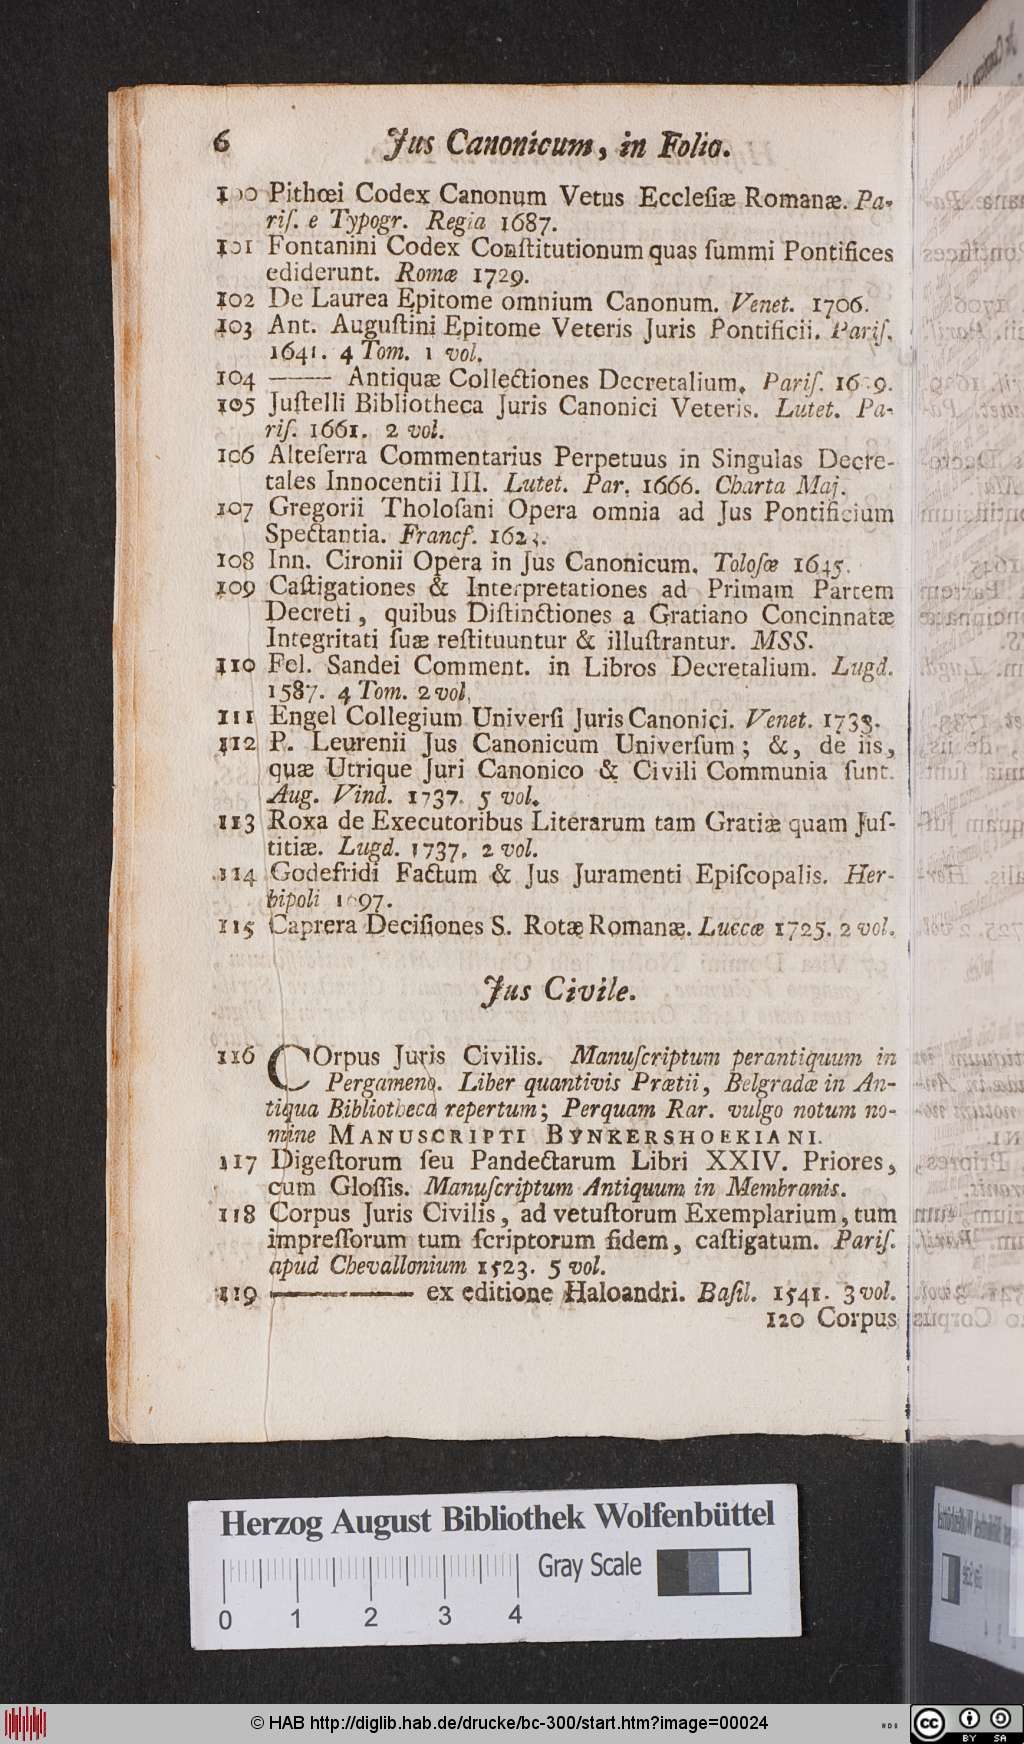 6 Jus Canonicum, in Folio.
100 Pithœi Codex Canonum Vetus Eccleſiæ Romanæ. Pa-
riſ. e Typogr. Regia 1687.
101 Fontanini Codex Conſtitutionum quas ſummi Pontifices
ediderunt. Romæ 1729.
102 De Laurea Epitome omnium Canonum. Venet. 1706.
103 Ant. Auguſtini Epitome Veteris Juris Pontificii. Pariſ.
1641. 4 Tom. 1 vol.
104 ——— Antiquæ Collectiones Decretalium. Pariſ.
105 Juſtelli Bibliotheca Juris Canonici Veteris. Lutet. Pa-
riſ. 1661. 2 vol.
106 Alteſerra Commentarius Perpetuus in Singulas Decre-
tales Innocentii III. Lutet. Par. 1666. Charta Maj.
107 Gregorii Tholoſani Opera omnia ad Jus Pontificium
Spectantia. Francf.
108 Inn. Cironii Opera in Jus Canonicum. Toloſæ 1645.
109 Caſtigationes & Interpretationes ad Primam Partem
Decreti, quibus Diſtinctiones a Gratiano Concinnatæ
Integritati ſuæ reſtituuntur & illuſtrantur. MSS.
110 Fel. Sandei Comment. in Libros Decretalium. Lugd.
1587. 4 Tom. 2 vol.
111 Engel Collegium Univerſi Juris Canonici. Venet. 1733.
112 P. Leurenii Jus Canonicum Univerſum; &, de iis,
quæ Utrique Juri Canonico & Civili Communia ſunt.
Aug. Vind. 1737. 5 vol.
113 Roxa de Executoribus Literarum tam Gratiæ quam Juſ-
titiæ. Lugd. 1737. 2 vol.
114 Godefridi Factum & Jus Juramenti Epiſcopalis. Her-
bipoli
115 Caprera Deciſiones S. Rotæ Romanæ. Luccæ 1725. 2 vol.
Jus Civile.
116 COrpus Juris Civilis. Manuſcriptum perantiquum in
Pergameno. Liber quantivis Prætii, Belgradæ in An-
tiqua Bibliotheca repertum; Perquam Rar. vulgo notum no-
mine MANUSCRIPTI BYNKERSHOEKIANI.
117 Digeſtorum ſeu Pandectarum Libri XXIV. Priores,
cum Gloſſis. Manuſcriptum Antiquum in Membranis.
118 Corpus Juris Civilis, ad vetuſtorum Exemplarium, tum
impreſſorum tum ſcriptorum fidem, caſtigatum. Pariſ.
apud Chevallonium 1523. 5 vol.
119 ——— ex editione Haloandri. Baſil. 1541. 3 vol.
120 Corpus
Herzog August Bibliothek Wolfenbüttel
Gray Scale
0 1 2 3 4
© HAB http://diglib.hab.de/drucke/bc-300/start.htm?image=00024
cc BY SA